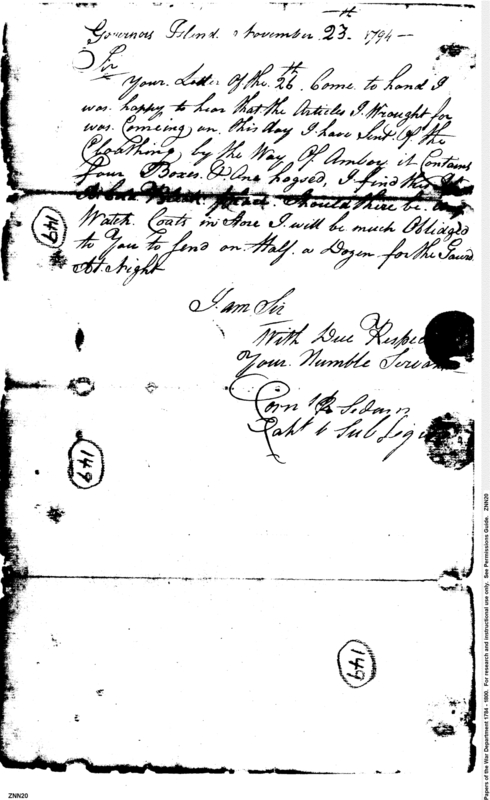 Governors Island November 23th 1794 —
Sir
Your Letter Of the 26th Come to hand I
was happy to hear that the Articles I Wrought for
was Comeing on. This day I have Sent Of the
Cloathing by the Way Of Amboy it Contains
four Boxes & One hogsed, I find this
A Cold Bleak place. Should there be any
Watch Coats in Store I will be much Obliged
to You to Send on Half a Dozen for the Gaurd
At Night
I am Sir
With Due Respec
Your Humble Servan
Corn R Sedam
Capt Sub Legi
149
149
149
ZNN20
Papers of the War Department 1784 - 1800. For research and instructional use only. See Permissions Guide. ZNN20